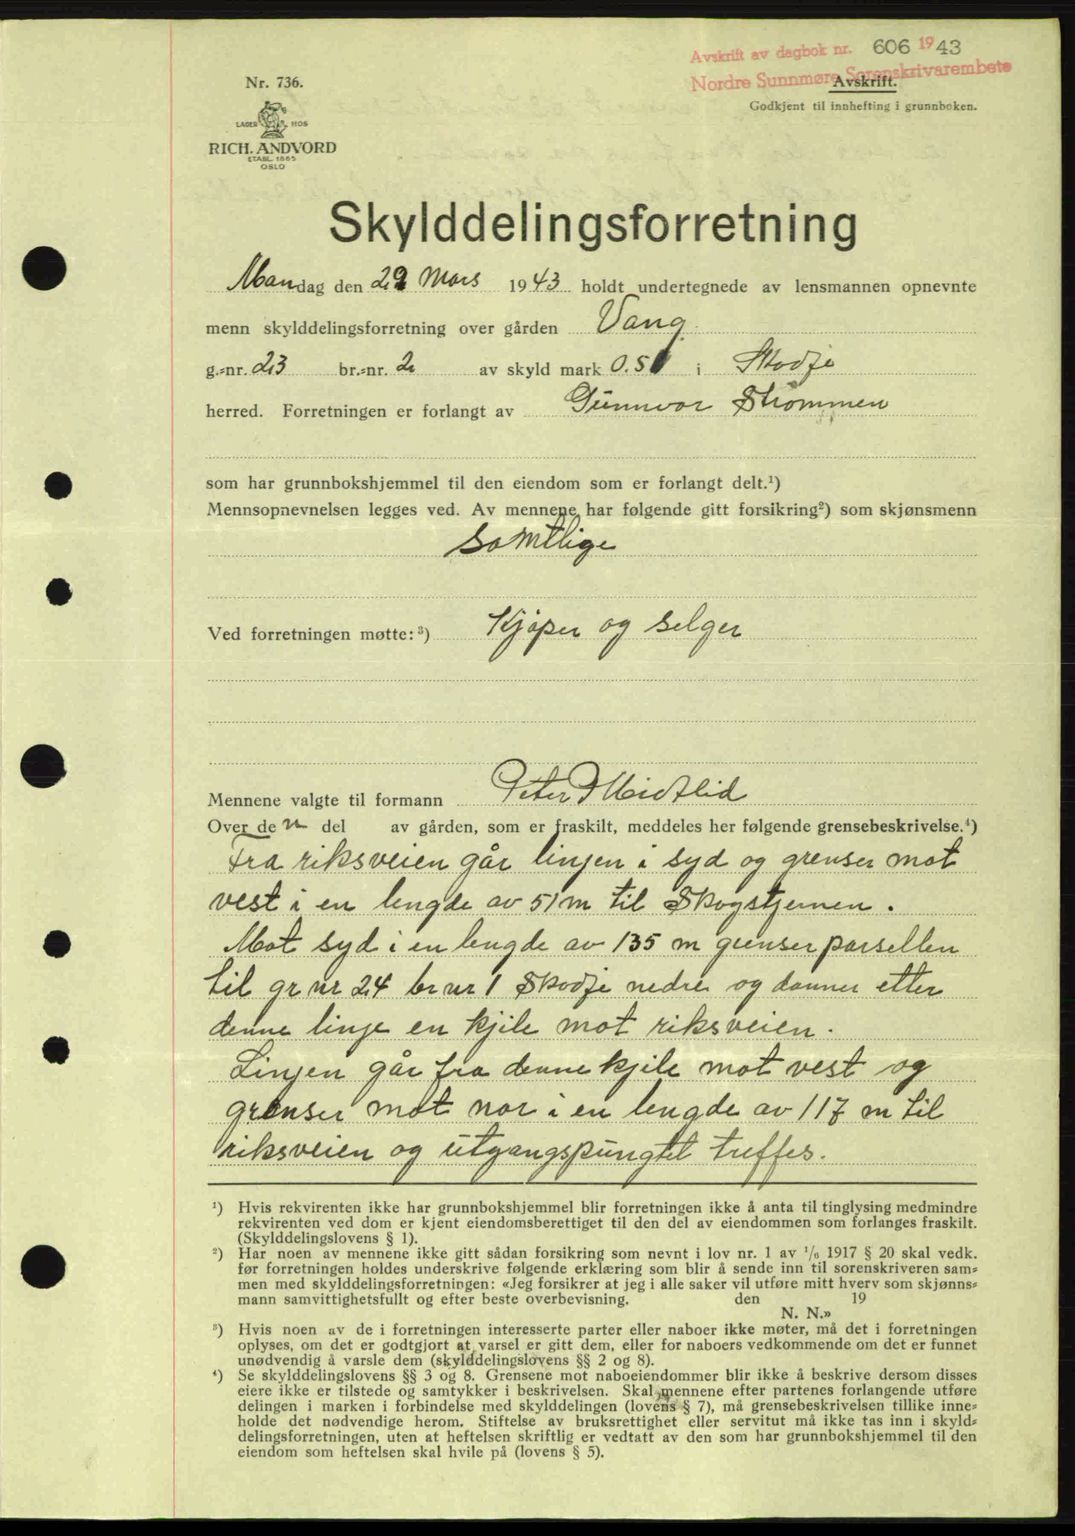 Avskrift av dagbok nr. 606 1943
Nordre Sunnmøre Sorenskrivarembete
Nr. 736.
Avskrift.
Godkjent til innhefting i grunnboken.
LAGER HOS
RICH. ANDVORD
ETABL. 1865
OSLO
Skylddelingsforretning
Mandag den 29 Mars 1943 holdt undertegnede av lensmannen opnevnte
menn skylddelingsforretning over gården Vang
g.=nr. 23 br.=nr. 2 av skyld mark 0.51 i Skodje
herred. Forretningen er forlangt av Gunnvor Strømmen
som har grunnbokshjemmel til den eiendom som er forlangt delt.¹)
Mennsopnevnelsen legges ved. Av mennene har følgende gitt forsikring²) som skjønsmenn
Samtlige
Ved forretningen møtte:³) Kjøper og selger
Mennene valgte til formann Peter P Midtlid
Over den del av gården, som er fraskilt, meddeles her følgende grensebeskrivelse.⁴)
Fra riksveien går linjen i syd og grenser mot
vest i en lengde av 51 m til Skogstjernen.
Mot syd i en lengde av 135 m grenser parsellen
til gr nr 24 br nr 1 Skodje nedre og danner etter
denne linje en kjile mot riksveien.
Linjen går fra denne kjile mot vest og
grenser mot nor i en lengde av 117 m til
riksveien og utgangspungtet treffes.
¹) Hvis rekvirenten ikke har grunnbokshjemmel blir forretningen ikke å anta til tinglysing medmindre
rekvirenten ved dom er kjent eiendomsberettiget til den del av eiendommen som forlanges fraskilt.
(Skylddelingslovens § 1).
²) Har noen av mennene ikke gitt sådan forsikring som nevnt i lov nr. 1 av ¹/₆ 1917 § 20 skal vedk.
før forretningen holdes underskrive følgende erklæring som blir å sende inn til sorenskriveren sam=
men med skylddelingsforretningen: «Jeg forsikrer at jeg i alle saker vil utføre mitt hverv som skjønns=
mann samvittighetsfullt og efter beste overbevisning. den 19
N. N.»
³) Hvis noen av de i forretningen interesserte parter eller naboer ikke møter, må det i forretningen
oplyses, om det er godtgjort at varsel er gitt dem, eller for naboers vedkommende om det er funnet
unødvendig å varsle dem (skylddelingslovens §§ 2 og 8).
⁴) Se skylddelingslovens §§ 3 og 8. Grensene mot naboeiendommer blir ikke å beskrive dersom disses
eiere ikke er tilstede og samtykker i beskrivelsen. Skal mennene efter partenes forlangende utføre
delingen i marken i forbindelse med skylddelingen (lovens § 7), må grensebeskrivelsen tillike inne=
holde det nødvendige herom. Stiftelse av bruksrettighet eller servitut må ikke tas inn i skyld=
delingsforretningen, uten at heftelsen skriftlig er vedtatt av den som har grunnbokshjemmel til den
eiendom som heftelsen skal hvile på (lovens § 5).